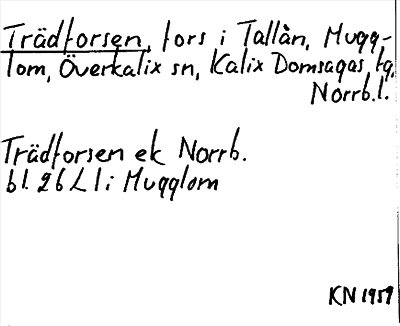 Trädforsen, fors i Tallån, Mugg-
lom, Överkalix sn, Kalix Domsagas tg,
Norrb.l.
Trädforsen ek Norrb.
bl. 26 L l i Mugglom
KN 1959